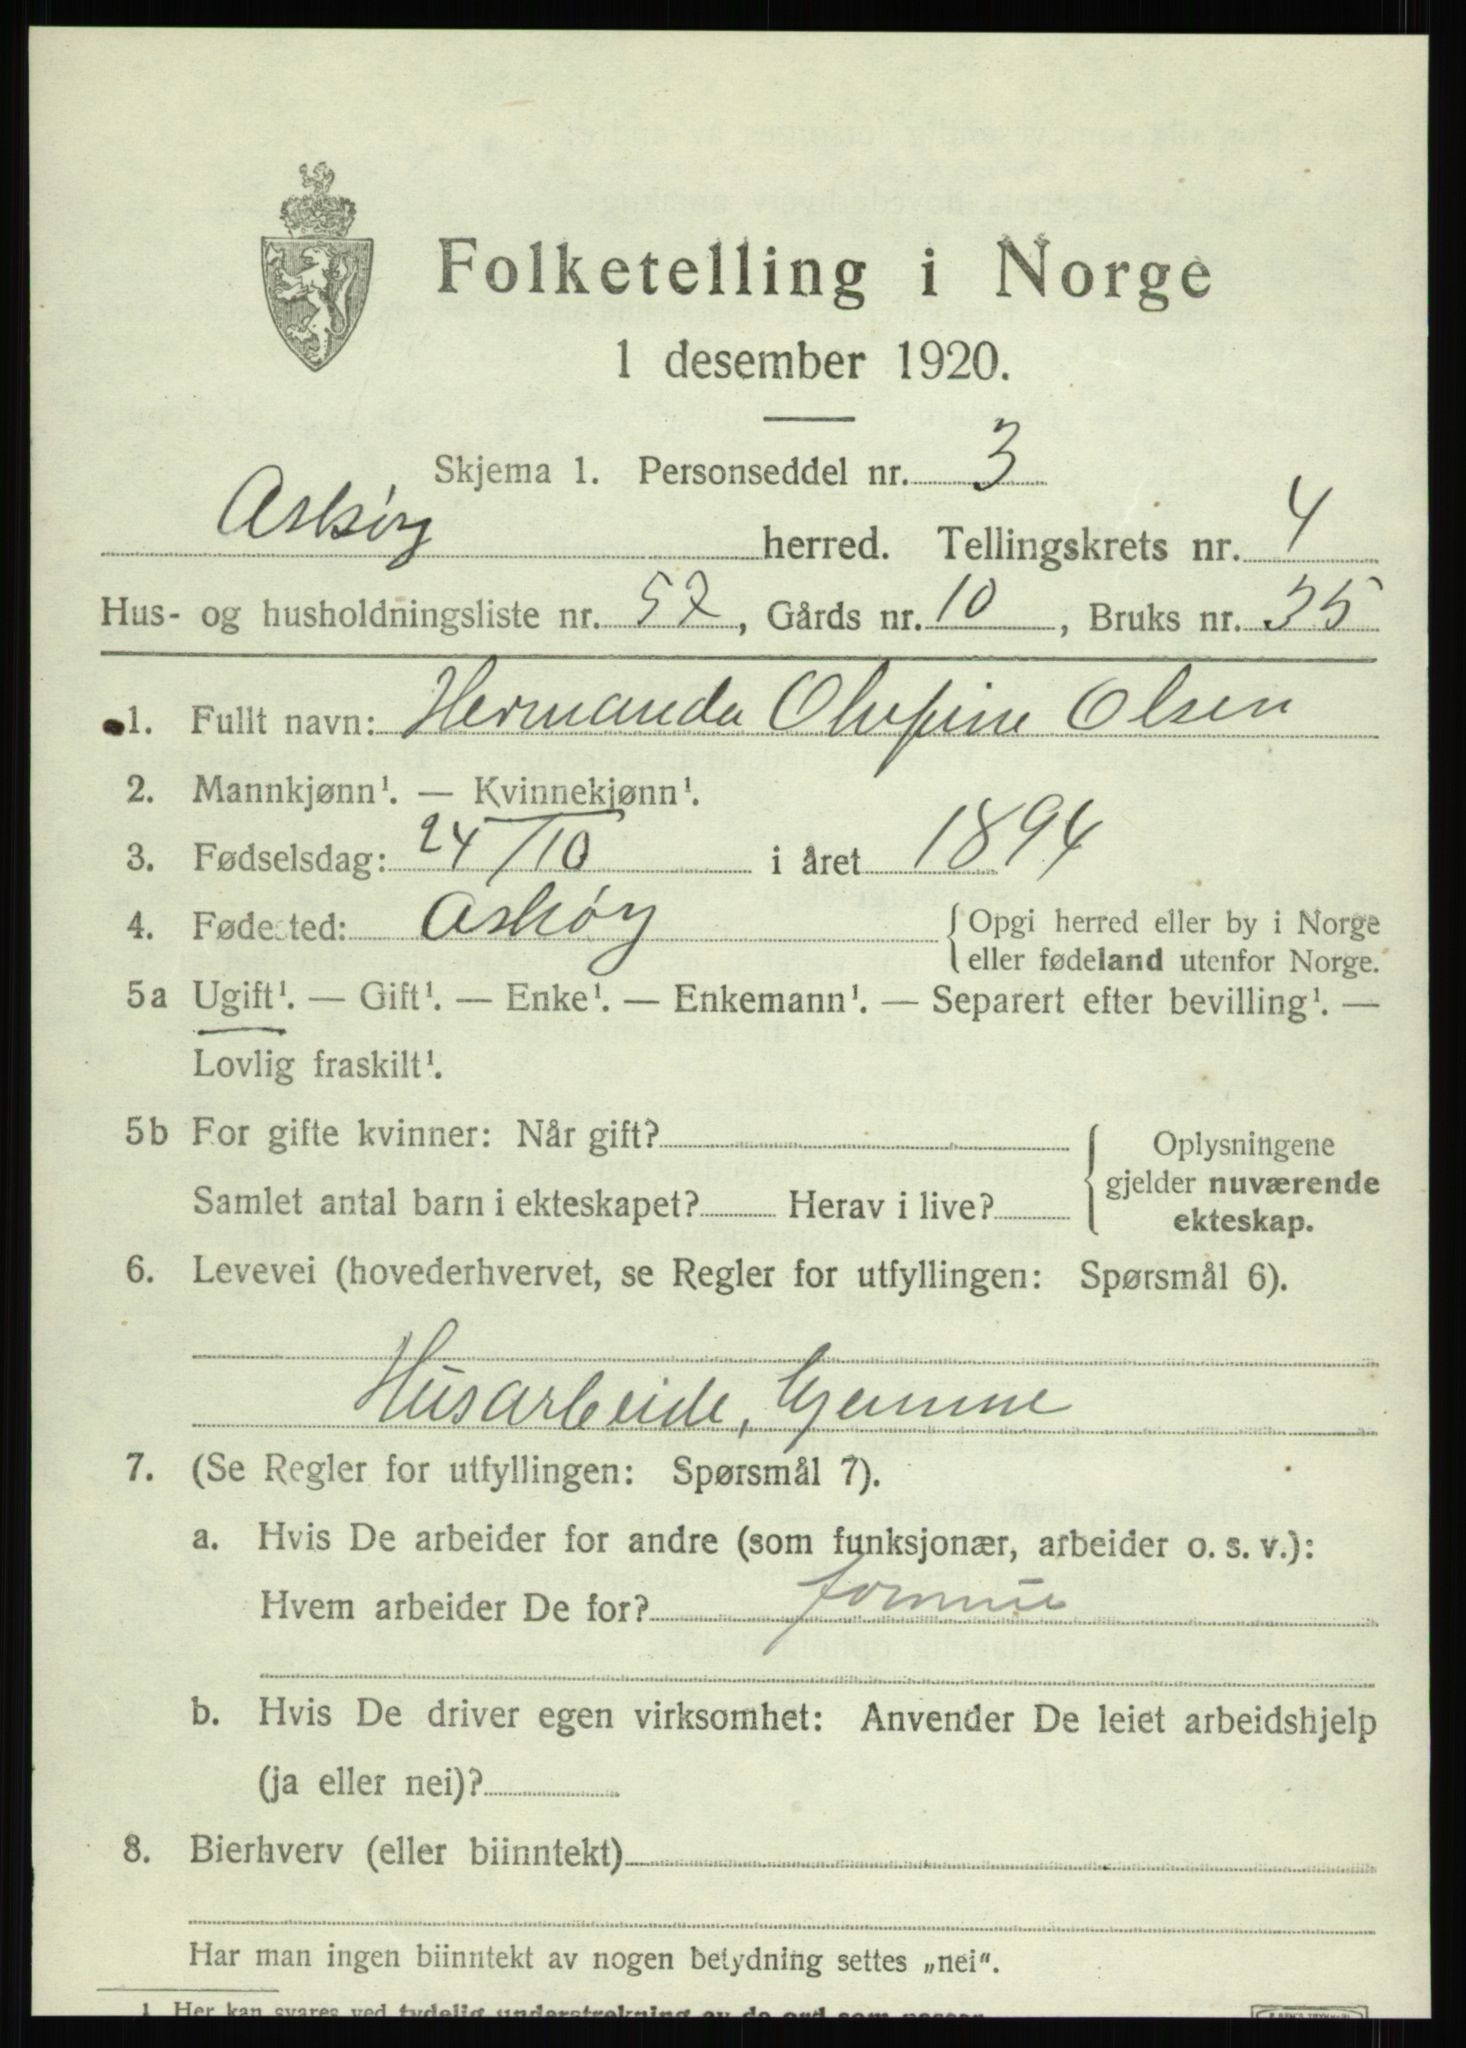 Folketelling i Norge
1 desember 1920.
Skjema 1. Personseddel nr. 3
Askøy herred. Tellingskrets nr. 4
Hus- og husholdningsliste nr. 57, Gårds nr. 10, Bruks nr. 35
1. Fullt navn: Hermanda Olufine Olsen
2. Mannkjønn¹. — Kvinnekjønn¹.
3. Fødselsdag: 24/10 i året 1894
4. Fødested: Askøy {Opgi herred eller by i Norge
eller fødeland utenfor Norge.
5a Ugift¹. — Gift¹. — Enke¹. — Enkemann¹. — Separert efter bevilling¹. —
Lovlig fraskilt¹.
5b For gifte kvinner: Når gift?
Samlet antal barn i ekteskapet? Herav i live?
{Oplysningene
gjelder nuværende
ekteskap.
6. Levevei (hovederhvervet, se Regler for utfyllingen: Spørsmål 6).
Husarbeide, hjemme
7. (Se Regler for utfyllingen: Spørsmål 7).
a. Hvis De arbeider for andre (som funksjonær, arbeider o. s. v.):
Hvem arbeider De for?
b. Hvis De driver egen virksomhet: Anvender De leiet arbeidshjelp
(ja eller nei)?
8. Bierhverv (eller biinntekt)
Har man ingen biinntekt av nogen betydning settes „nei“.
1 Her kan svares ved tydelig understrekning av de ord som passer.